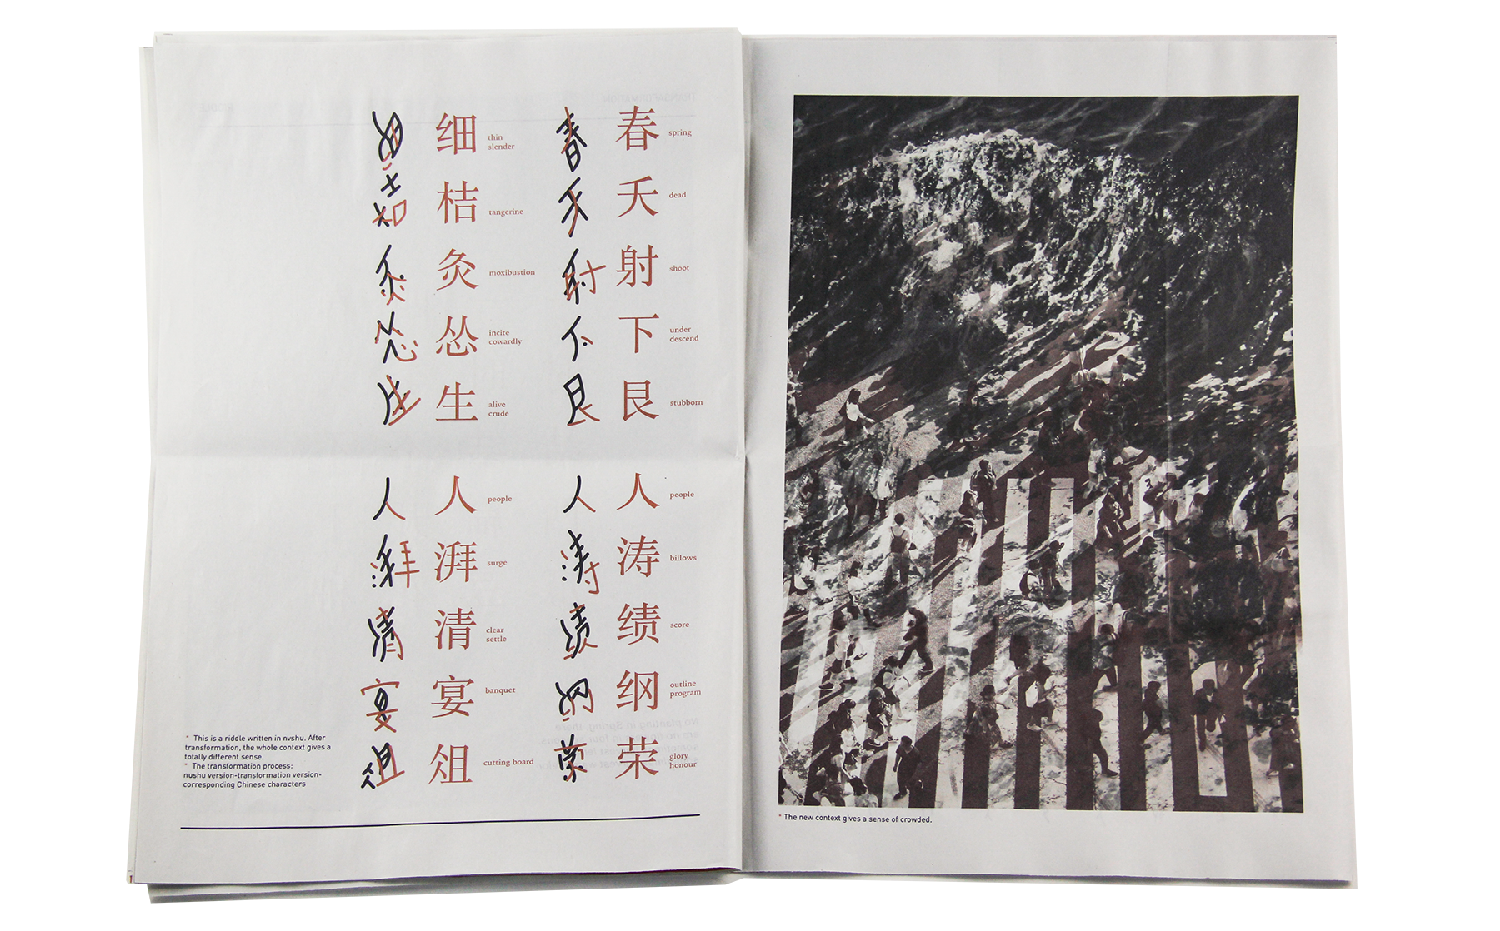 春 spring
夭 dead
射 shoot
下 under
descend
艮 stubborn
人 people
涛 billows
绩 score
纲 outline
program
荣 glory
honour
细 thin
slender
桔 tangerine
灸 moxibustion
怂 incite
cowardly
生 alive
crude
人 people
湃 surge
清 clear
settle
宴 banquet
俎 cutting board
* This is a riddle written in nvshu. After
transformation, the whole context gives a
totally different sense
* The transformation process:
nushu version-transformation version-
corresponding Chinese characters
* The new context gives a sense of crowded.